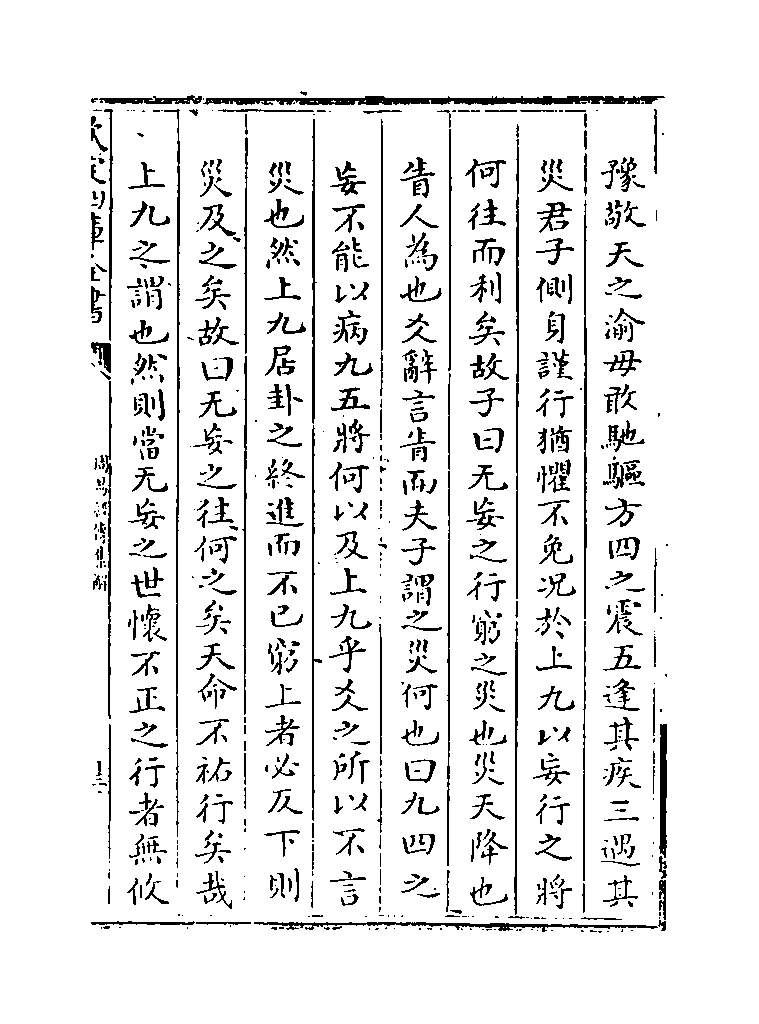 豫敬天之渝毋敢馳驅方四之震五逢其疾三遇其
災君子側身謹行猶懼不免况於上九以妄行之將
何往而利矣故子曰无妄之行窮之災也災天降也
眚人為也爻辭言眚而夫子謂之災何也曰九四之
妄不能以病九五將何以及上九乎爻之所以不言
災也然上九居卦之終進而不已窮上者必反下則
災及之矣故曰无妄之往何之矣天命不祐行矣哉
上九之謂也然則當无妄之世懷不正之行者無攸
欽定四庫全書
周易經傳集解
十三